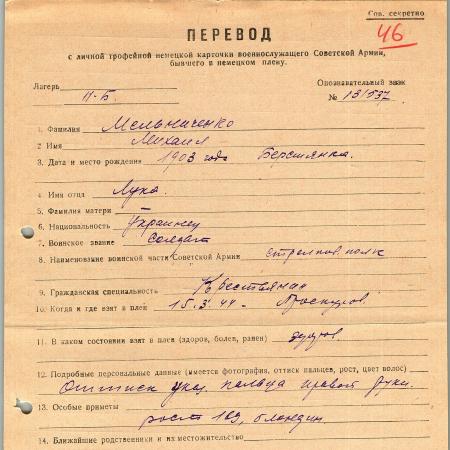 Сов. секретно
46
ПЕРЕВОД
с личной трофейной немецкой карточки военнослужащего Советской Армии,
бывшего в немецком плену.
Лагерь
Опознавательный знак
II-Б
№ 131537
1. Фамилия Мельниченко
2 Имя Михаил
3. Дата и место рождения 1903 года Берестянка.
4. Имя отца Лука
5. Фамилия матери —
6. Национальность Украинец
7. Воинское звание солдат
8. Наименование воинской части Советской Армии стрелков. полк
9. Гражданская специальность Крестьянин
10. Когда и где взят в плен 15.3.44 - Проскуров.
11. В каком состоянии взят в плен (здоров, болен, ранен) здоров.
12. Подробные персональные данные (имеется фотография, оттиск пальцев, рост, цвет волос)
Оттиск указ. пальца правой руки.
13. Особые приметы
рост 169, блондин.
14. Ближайшие родственники и их местожительство